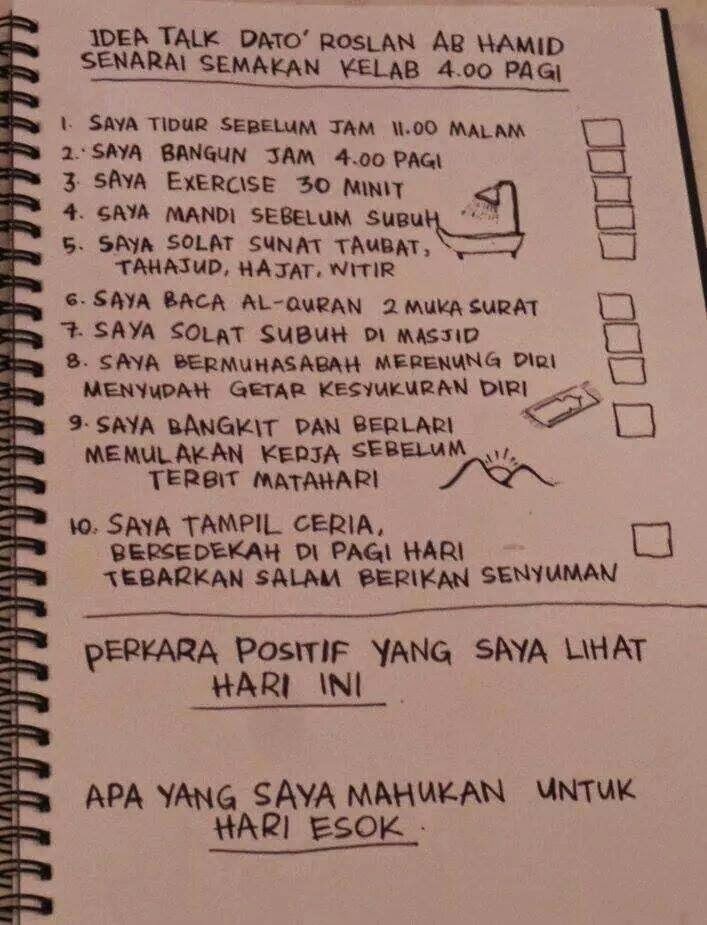 IDEA TALK DATO' ROSLAN AB HAMID
SENARAI SEMAKAN KELAB 4.00 PAGI
1. SAYA TIDUR SEBELUM JAM 11.00 MALAM
2. SAYA BANGUN JAM 4.00 PAGI
3. SAYA EXERCISE 30 MINIT
4. SAYA MANDI SEBELUM SUBUH
5. SAYA SOLAT SUNAT TAUBAT,
TAHAJUD, HAJAT, WITIR
6. SAYA BACA AL-QURAN 2 MUKA SURAT
7. SAYA SOLAT SUBUH DI MASJID
8. SAYA BERMUHASABAH MERENUNG DIRI
MENYUDAH GETAR KESYUKURAN DIRI
9. SAYA BANGKIT DAN BERLARI
MEMULAKAN KERJA SEBELUM
TERBIT MATAHARI
10. SAYA TAMPIL CERIA,
BERSEDEKAH DI PAGI HARI
TEBARKAN SALAM BERIKAN SENYUMAN
PERKARA POSITIF YANG SAYA LIHAT
HARI INI
APA YANG SAYA MAHUKAN UNTUK
HARI ESOK.